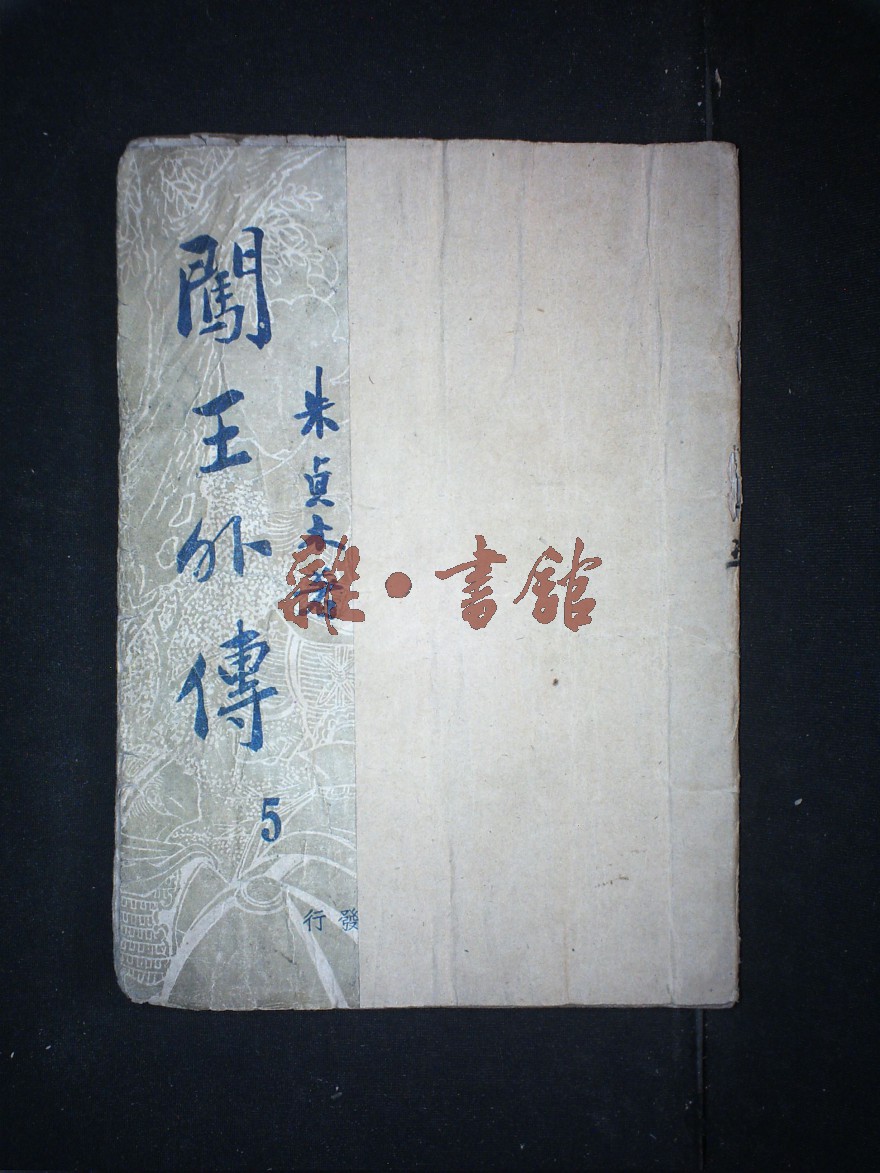 闖王外傳
5
朱貞木著
發行
雜·書館